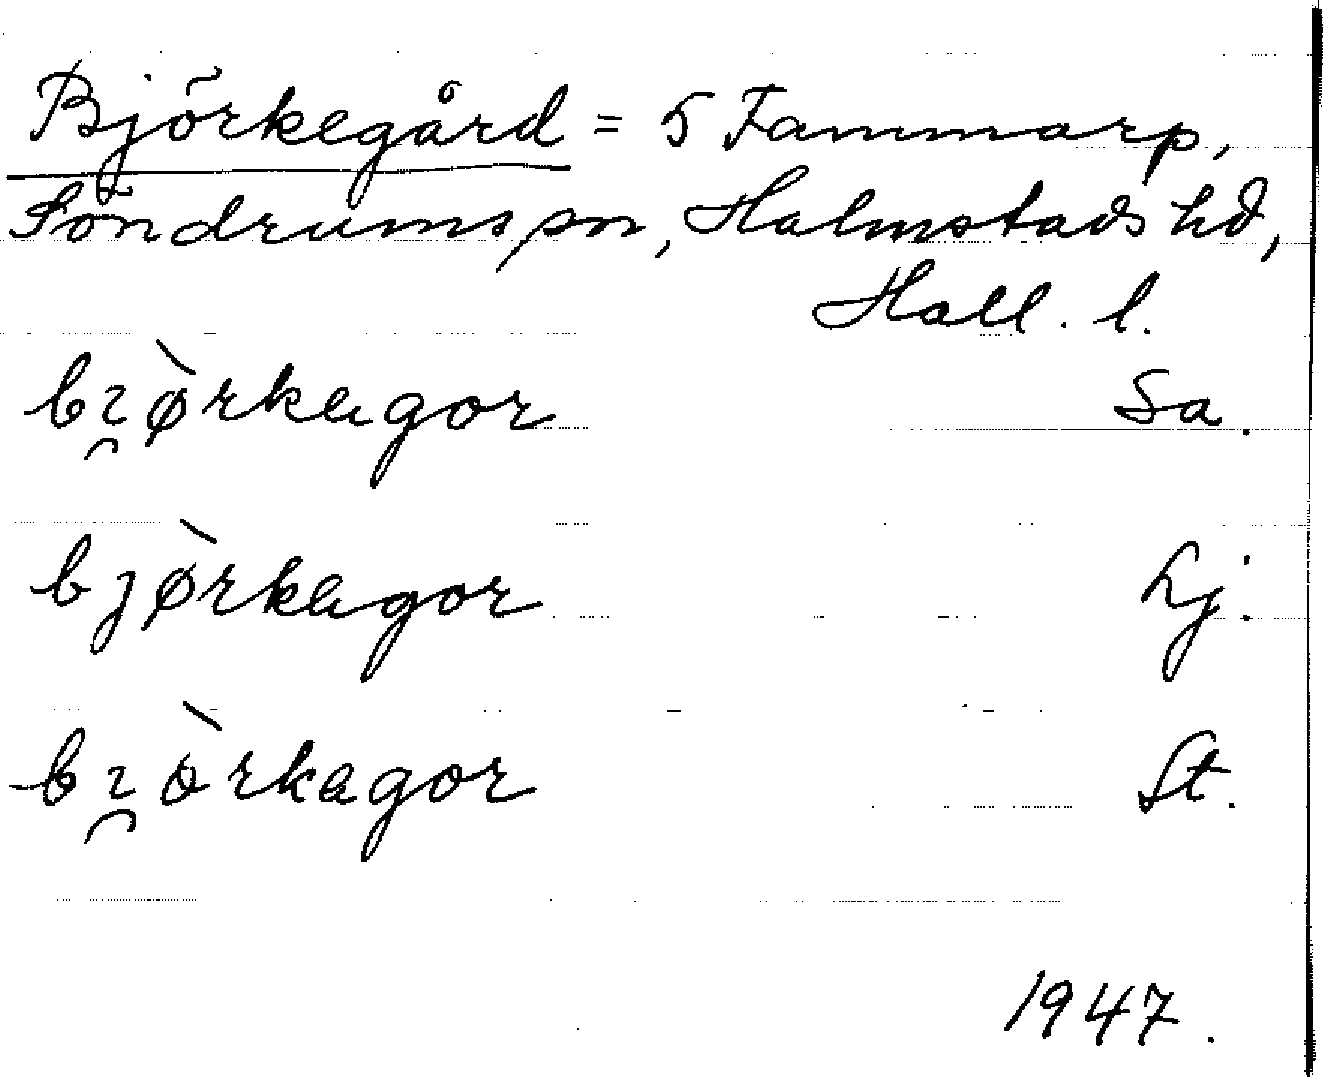 Björkegård = 5 Fammarp,
Söndrums sn, Halmstads hd,
Hall. l.
bi̯ø̀rkagor Sa.
bjø̀rkagor Lj.
bi̯òrkagor St.
1947.